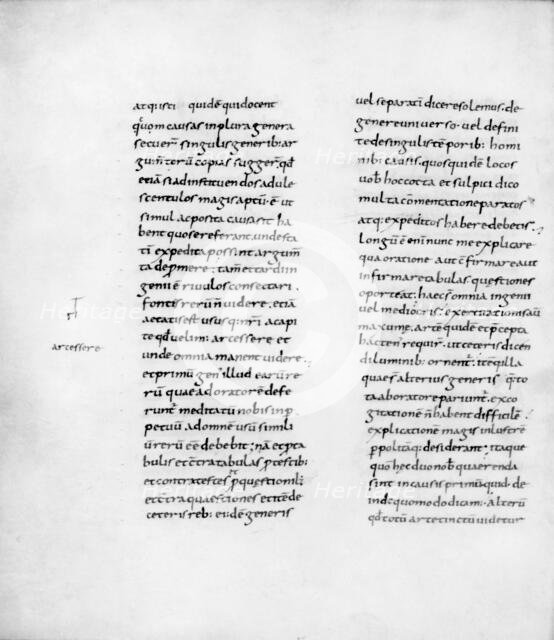 atq; isti quidē qui docent
quom causas in plura genera
secuer̄ singulis generib; ar
gum̄toru copias sugger̄ qđ
etiā si ad instituendos adule
scentulos magis aptū ē ut
simul ac posita causa sit ha
beant quo se referant unde sta
tī expedita possint argum̄
ta depmere tam̄ et tardi in
genii ē rivulos consectari
fontis rerū n̄ videre et iā
aetatis est usus q; nr̄i a capi
te qđ velim; arcessere et
unde omnia manent videre
et primū gen; illud earū re
rū quae ad oratorē defe
runt̄ meditatū nobis in p
petuū ad omnē usū simili
ū rerū eē debebit; nā et p ta
bulis et cōtra tabulas et p testib;
et contra testes et p questionib;
et cōtra quaestiones et itē de
ceteris reb; ei; dē generis
arcessere
vel separatī dicere solemus de
genere universo vel defini
te de singulis tēporib; homi
nib; causis quos quidē locos
vob̄ hoc cotta et sulpici dico
multa cōmentatione paratos
atq; expeditos habere debetis
longū ē enī nunc me explicare
qua oratione aut cōfirmare aut
infirmare tabulas questiones
oporteat haec s̄ omnia ingenii
vel mediocris exercitationis aū
maxume artē quidē et pcepta
hactēn requir̄ ut certis dicen
di luminib; ornent̄ itēq; illa
quae s̄ alterius generis q̄ to
ta ab oratore pariunt̄ exco
gitationē n̄ habent difficilē
explicationē magis inlustrē
ppolitāq; desiderant itaque
quo hec duo nob̄ querenda
sint in causis primū quid de
inde quomodo dicam; alterū
qđ totū arte tinctū videtur
Heritage
Heritage
Heritage
Heritage
Heritage